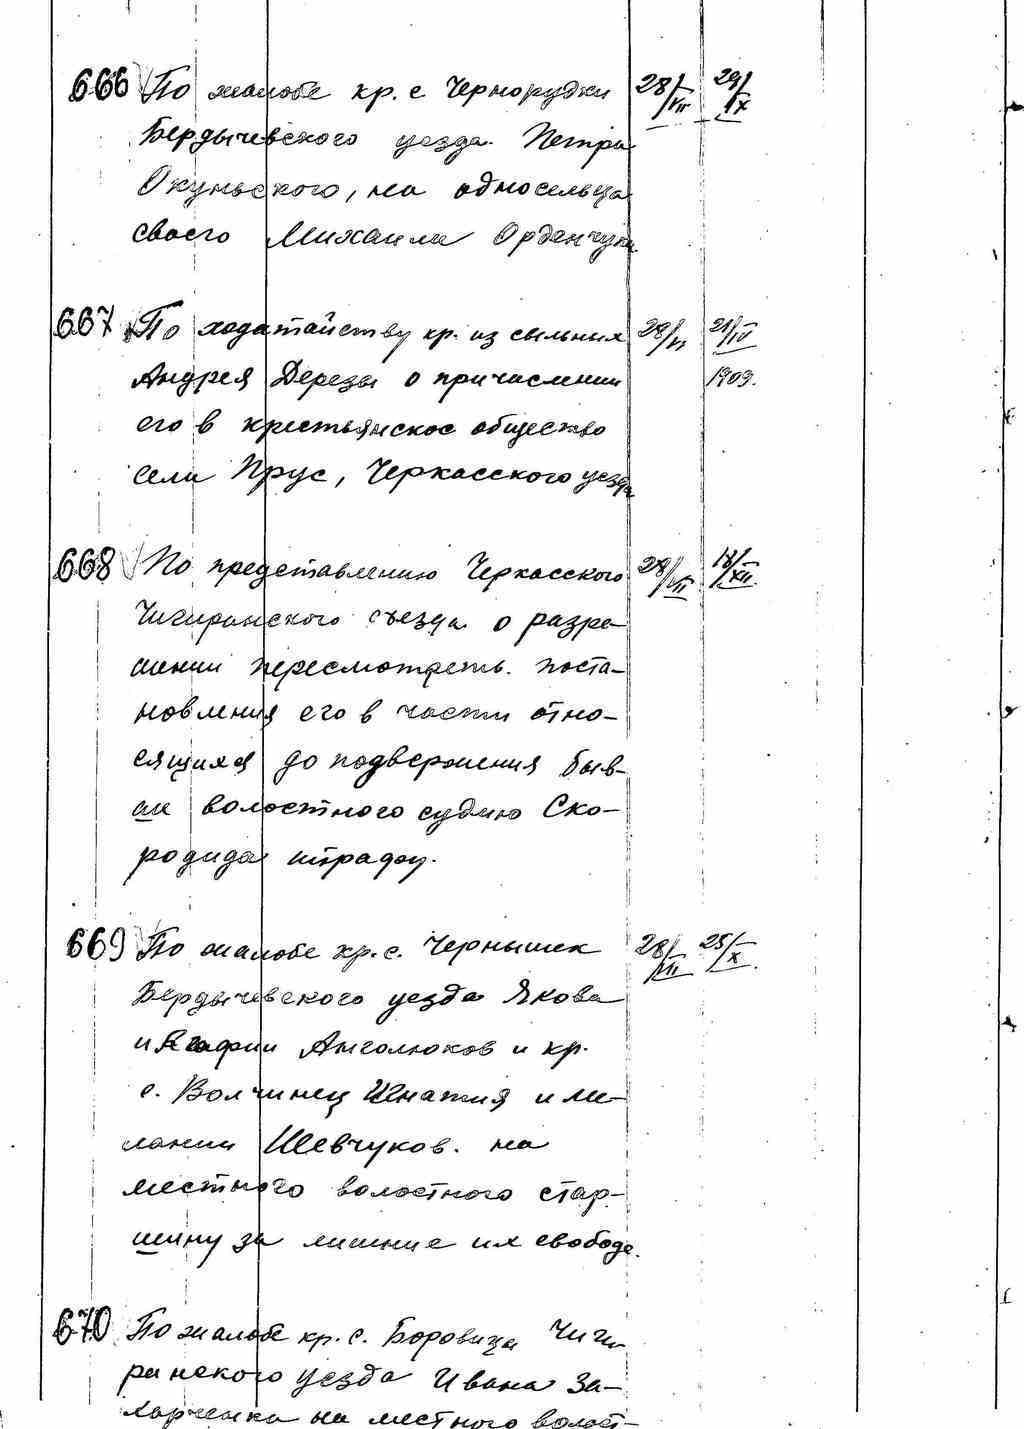 666 По жалобе кр. с Чернорудки 28/VII 29/IX
Бердычевского уезда Петра
Окуньского, на односельца
своего Михаила Орденчука
667 По ходатайству кр. из сыльных 28/VI 21/IV
Андрея Дерезы о причислении 1909.
его в крестьянское общество
села Прус, Черкасского уезда
668 По представлению Черкасского 28/VII 18/XII.
Чигиринского съезда о разре-
шении пересмотреть поста-
новления его в части отно-
сящихся до подвержения быв-
ш волостного судию Ско-
родида штрафу.
669 По жалобе кр. с. Чернышек 28/VII 25/X.
Бердычевского уезда Якова
и Агафии Анголюков и кр.
с. Волчинец Игнатия и ме-
лании Шевчуков. на
местного волостного стар-
шину за лишение их свободе.
670 По жалобе кр. с. Боровица Чиги
ринского уезда Ивана За-
харченка на местного волост-